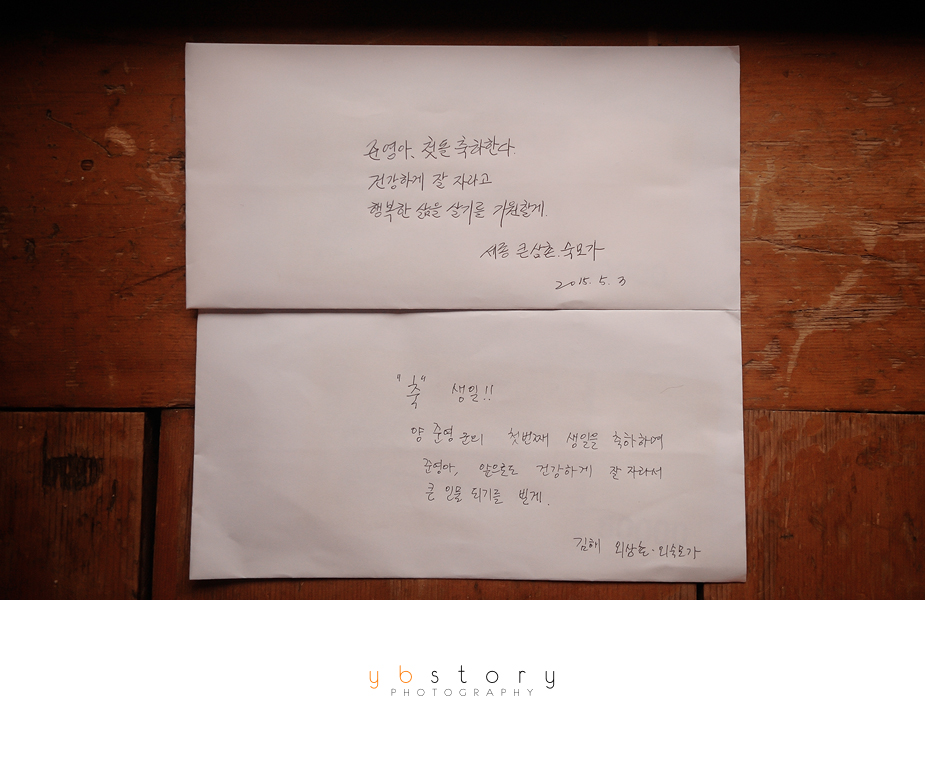 준영아, 첫돌 축하한다.
건강하게 잘 자라고
행복한 삶을 살기를 기원할게.
세종 큰삼촌.숙모가
2015. 5. 3
"축" 생일!!
양 준영 군의 첫번째 생일을 축하하며
준영아, 앞으로도 건강하게 잘 자라서
큰 인물 되기를 빌게.
김해 외삼촌·외숙모가
ybstory
PHOTOGRAPHY